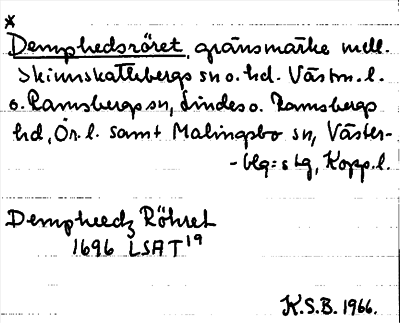 *
Demphedsröret, gränsmärke mell.
Skinnskattebergs sn o. hd. Västm. l.
o. Ramsbergs sn, Lindes o. Ramsbergs
hd, Ör. l. samt Malingsbo sn, Väster-
-blg:s tg, Kopp. l.
Dempheedz Röhret
1696 LSAT 19
K.S.B. 1966.